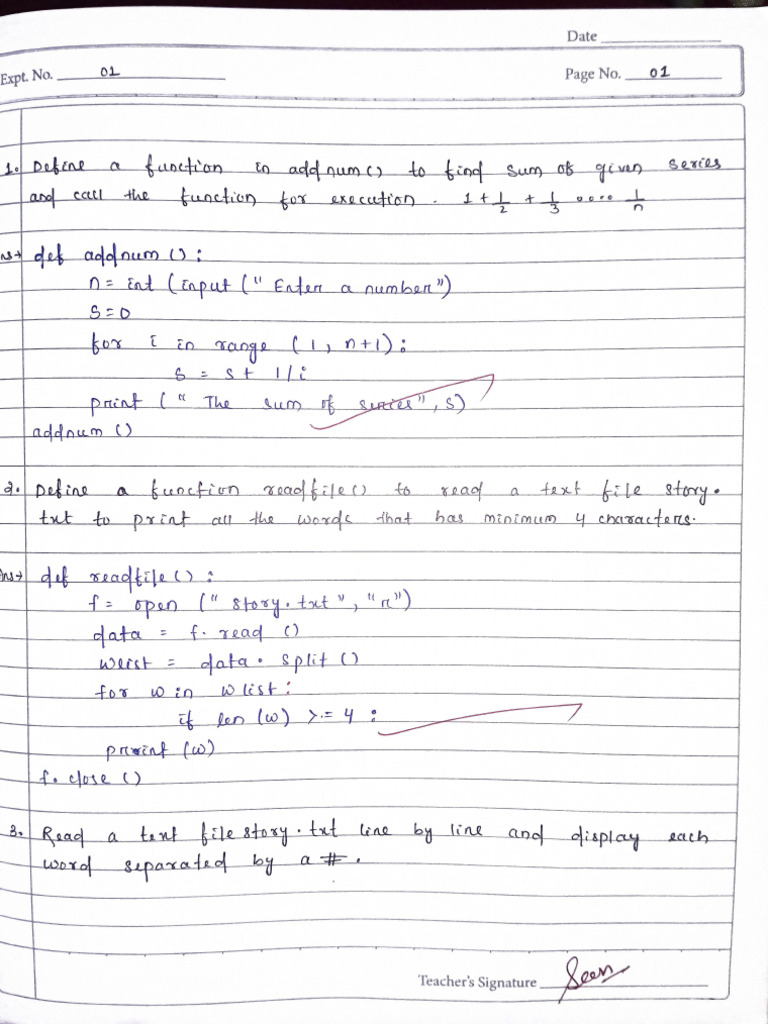 Date
Expt. No. 01
Page No. 01
1. Define a function in addnum() to find sum of given series
and call the function for execution. 1 + 1/2 + 1/3 .... 1/n
Ans→ def addnum():
n = int (input (" Enter a number")
S=0
for i in range (1, n+1):
s = s + 1/i
print (" The sum of series", s)
addnum ()
2. Define a function readfile() to read a text file story.
txt to print all the words that has minimum 4 characters.
Ans→ def readfile():
f = open (" story.txt", "r")
data = f. read ()
wlist = data. split ()
for w in wlist:
if len (w) >= 4 :
print (w)
f. close ()
3. Read a text file story.txt line by line and display each
word separated by a #.
Teacher's Signature Seen